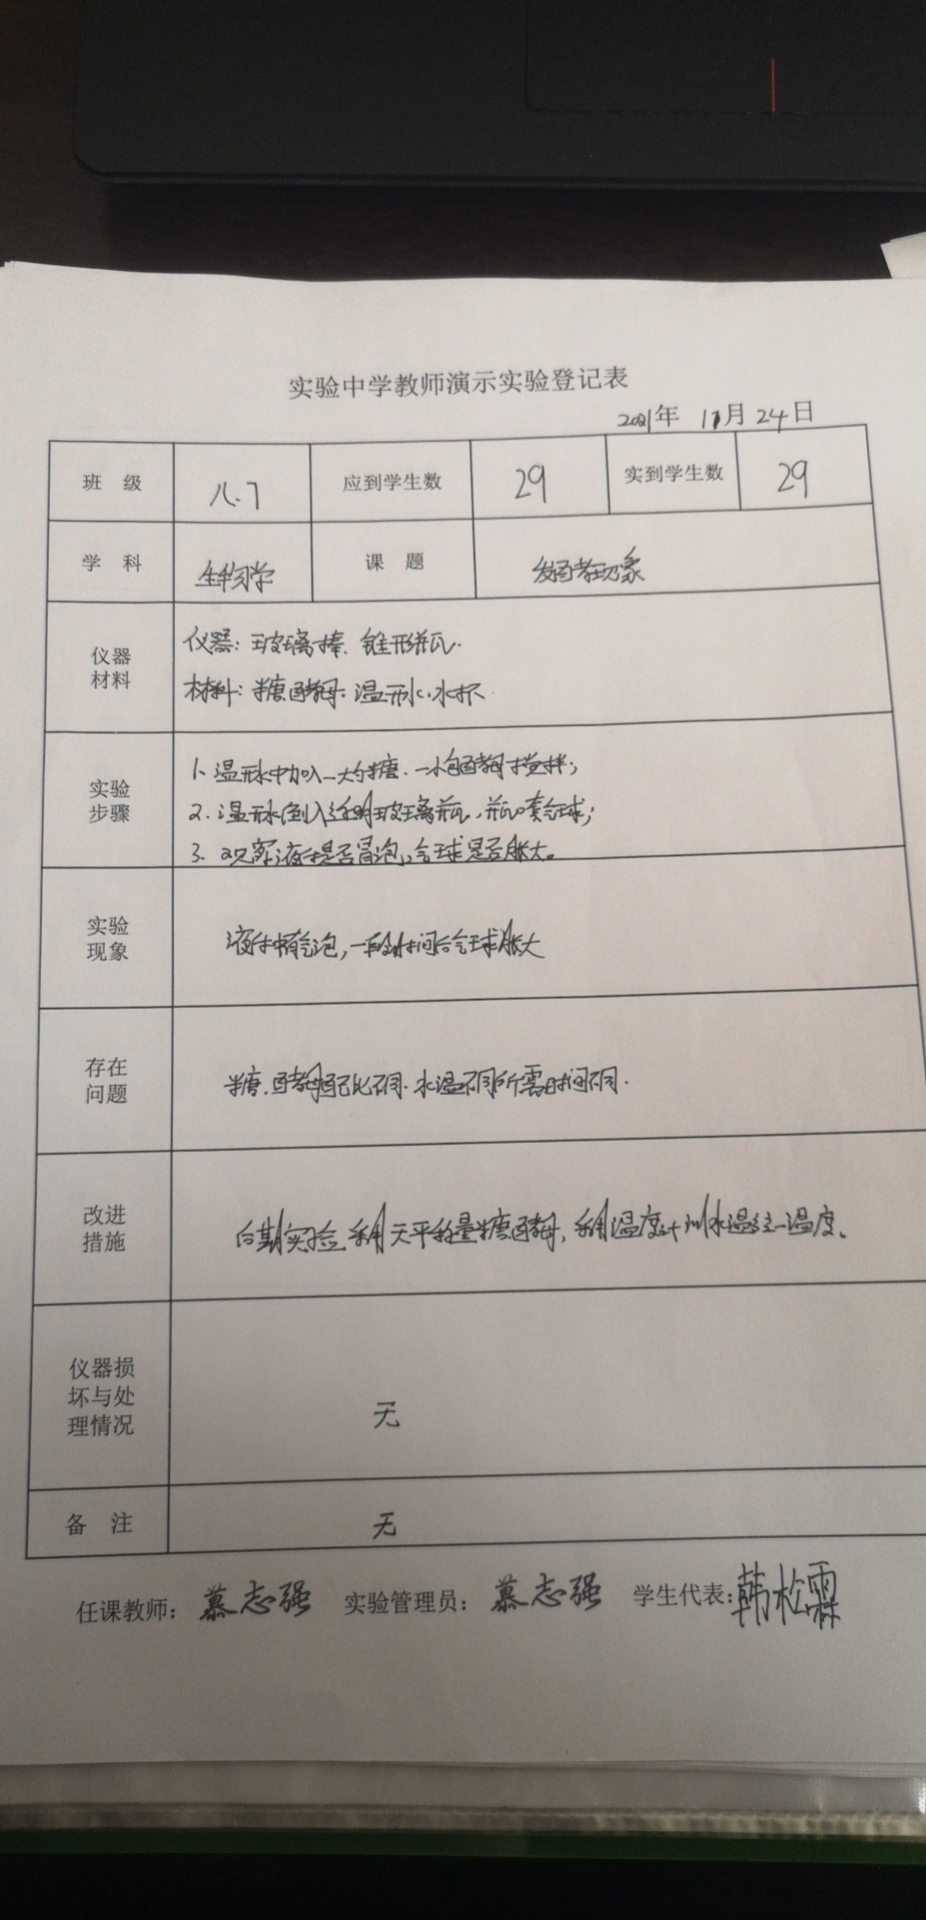 实验中学教师演示实验登记表
2021年 11月 24日
班 级 八.7 应到学生数 29 实到学生数 29
学 科 生物学 课 题 发酵现象
仪器
材料
仪器：玻璃棒、锥形瓶.
材料：糖、酵母、温开水、水杯
实验
步骤
1、温开水中加入一大勺糖、一小包酵母搅拌；
2、温开水倒入透明玻璃瓶，瓶口套气球；
3、观察液体是否冒泡，气球是否胀大。
实验
现象
液体中有气泡，一段时间后气球胀大
存在
问题
糖、酵母配比不同、水温不同所需时间不同.
改进
措施
后期实验利用天平称量糖酵母，利用温度计测水温统一温度。
仪器损
坏与处
理情况
无
备 注 无
任课教师：慕志强 实验管理员：慕志强 学生代表：韩松霖